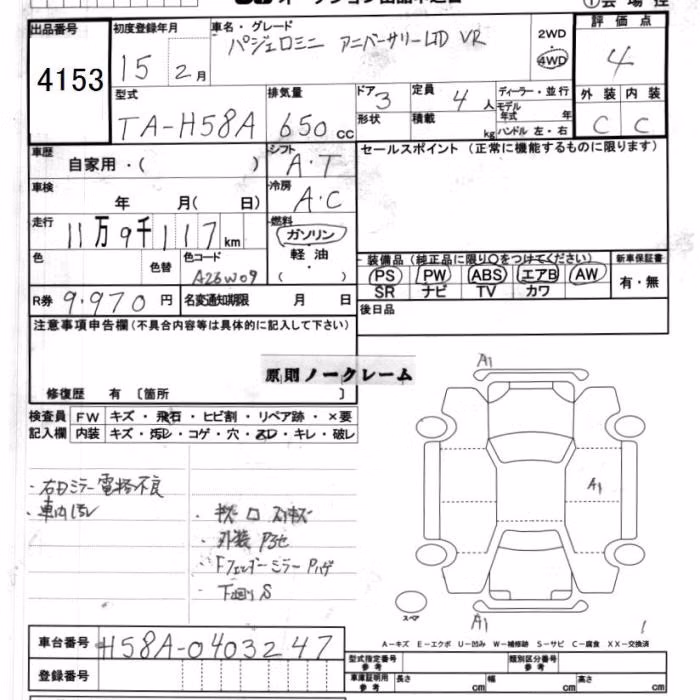 出品番号
4153
初度登録年月
15 2月
車名・グレード
パジェロミニ アニバーサリーLTD VR
2WD
4WD
評価点
4
型式
TA-H58A
排気量
650 cc
ドア
3
定員
4 人
形状
積載
kg
ディーラー・並行
モデル
年式 年
ハンドル 左・右
外装 内装
C C
車歴
自家用・( )
シフト
A・T
セールスポイント (正常に機能するものに限ります)
車検
年 月( 日)
冷房
A・C
走行
11万9千117km
燃料
ガソリン
軽油
・
( )
色
色替
色コード
A26W09
装備品 (純正品に限り○をつけてください)
PS PW ABS エアB AW
SR ナビ TV カワ
新車保証書
有・無
R券 9.970 円
名変通知期限 月 日
後日品
注意事項申告欄(不具合内容等は具体的に記入して下さい)
原則ノークレーム
修復歴 有 〔箇所 〕
検査員
記入欄
FW キズ・飛石・ヒビ割・リペア跡・×要
内装 キズ・汚レ・コゲ・穴・スレ・キレ・破レ
・右ドミラー電格不良
・車内汚レ
・外装
・Fフェンダーミラー Pハゲ
・下廻りS
A1
A1
A1
スペア
A-キズ E-エクボ U-凹み W-補修跡 S-サビ C-腐食 XX-交換済
車台番号 H58A-0403247
登録番号
型式指定番号
参考
類別区分番号
参考
車庫証明用
参考
長さ cm 幅 cm 高さ cm